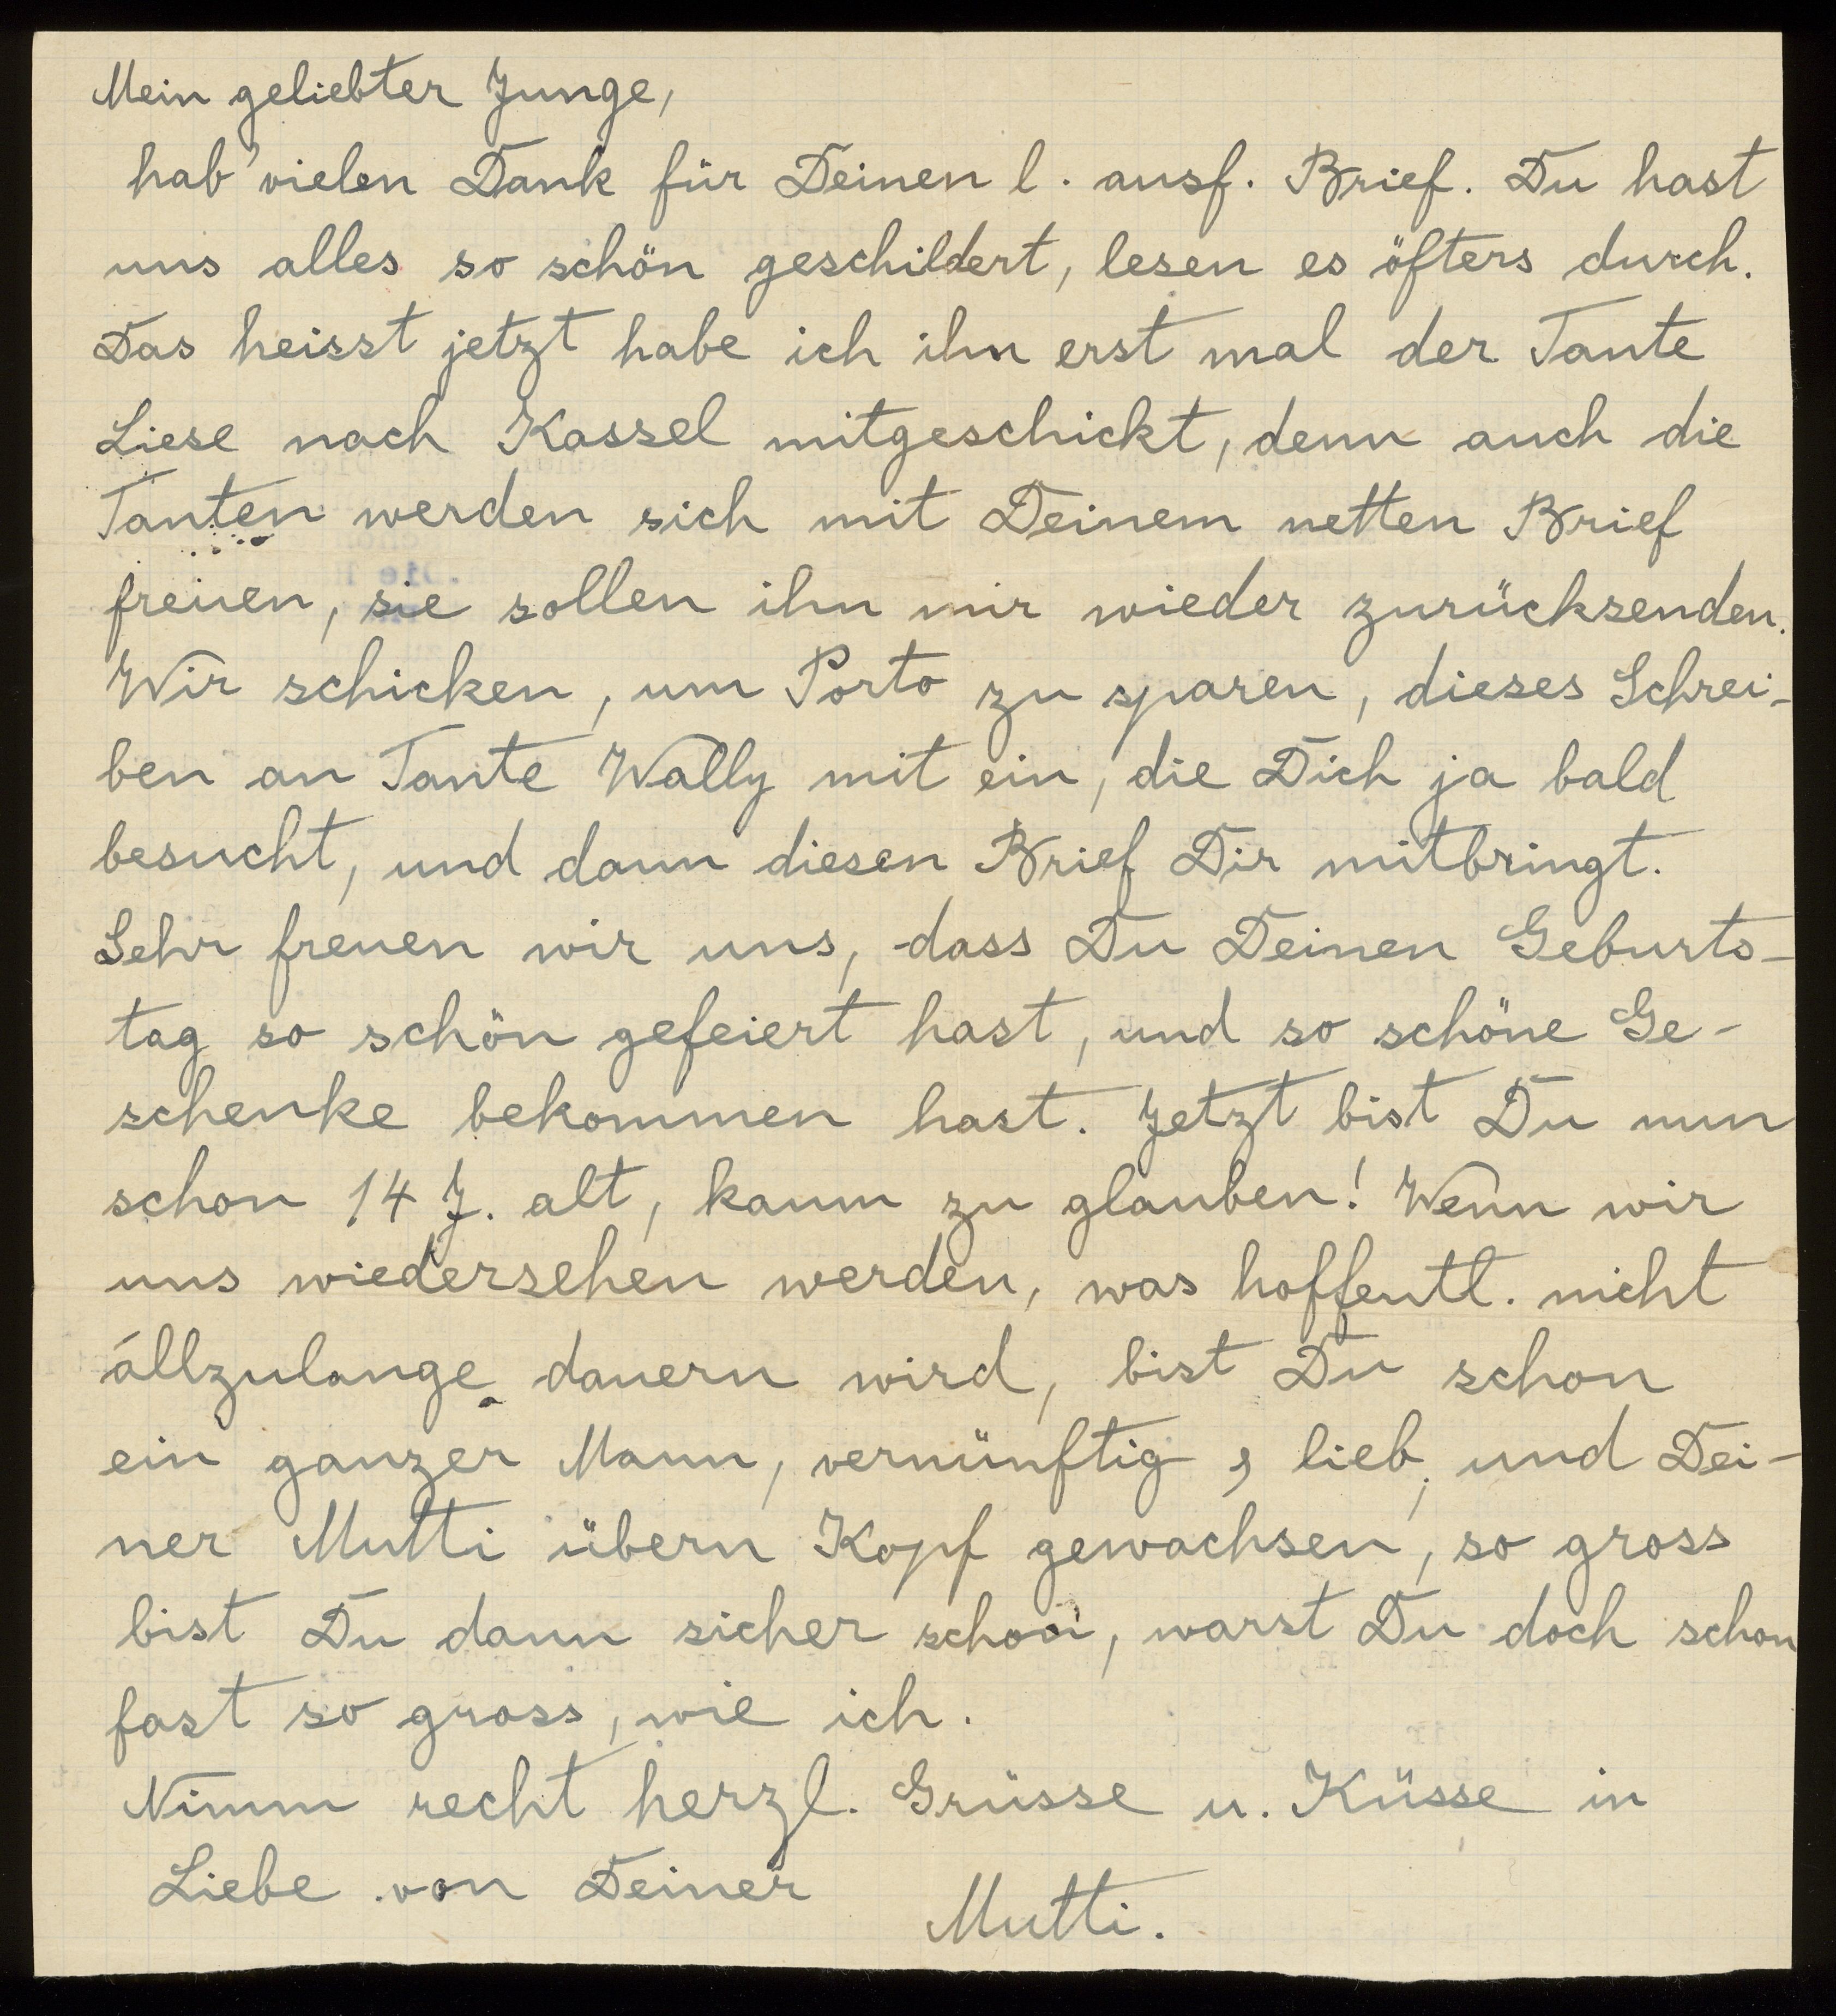 Mein geliebter Junge,
hab' vielen Dank für Deinen l. ausf. Brief. Du hast
uns alles so schön geschildert, lesen es öfters durch.
Das heisst jetzt habe ich ihn erst mal der Tante
Liese nach Kassel mitgeschickt, denn auch die
Tanten werden sich mit Deinem netten Brief
freuen, sie sollen ihn mir wieder zurücksenden.
Wir schicken, um Porto zu sparen, dieses Schrei-
ben an Tante Wally mit ein, die Dich ja bald
besucht, und dann diesen Brief Dir mitbringt.
Sehr freuen wir uns, dass Du Deinen Geburts-
tag so schön gefeiert hast, und so schöne Ge-
schenke bekommen hast. Jetzt bist Du nun
schon 14 J. alt, kaum zu glauben! Wenn wir
uns wiedersehen werden, was hoffentl. nicht
allzulange dauern wird, bist Du schon
ein ganzer Mann, vernünftig, lieb, und Dei-
ner Mutti übern Kopf gewachsen, so gross
bist Du dann sicher schon, warst Du doch schon
fast so gross, wie ich.
Nimm recht herzl. Grüsse u. Küsse in
Liebe von Deiner
Mutti.